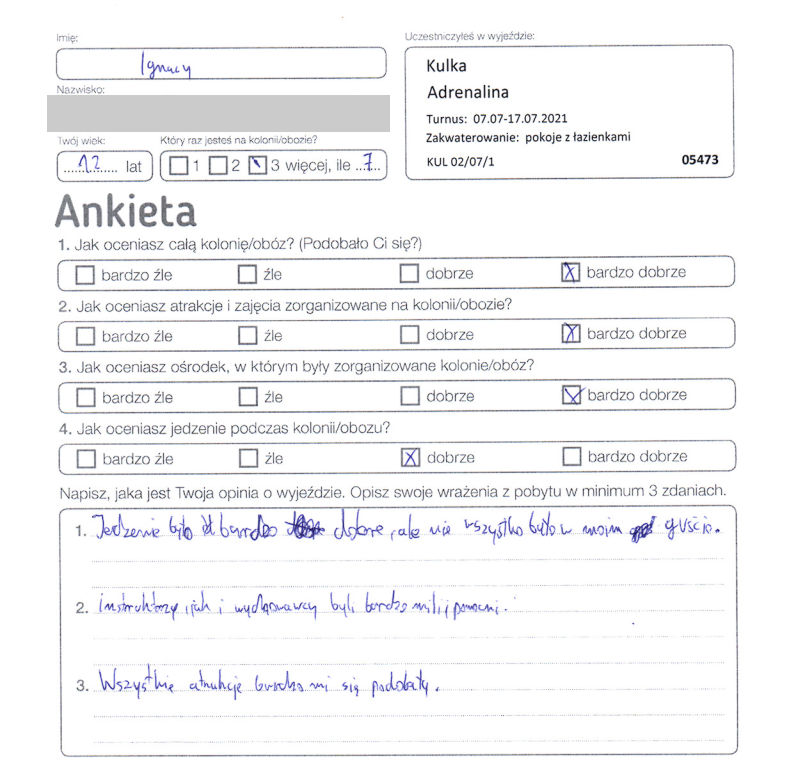 Imię:
Ignacy
Nazwisko:
Twój wiek:
12 lat
Który raz jesteś na kolonii/obozie?
1 2 3 więcej, ile 7
Uczestniczyłeś w wyjeździe:
Kulka
Adrenalina
Turnus: 07.07-17.07.2021
Zakwaterowanie: pokoje z łazienkami
KUL 02/07/1 05473
Ankieta
1. Jak oceniasz całą kolonię/obóz? (Podobało Ci się?)
bardzo źle źle dobrze bardzo dobrze
2. Jak oceniasz atrakcje i zajęcia zorganizowane na kolonii/obozie?
bardzo źle źle dobrze bardzo dobrze
3. Jak oceniasz ośrodek, w którym były zorganizowane kolonie/obóz?
bardzo źle źle dobrze bardzo dobrze
4. Jak oceniasz jedzenie podczas kolonii/obozu?
bardzo źle źle dobrze bardzo dobrze
Napisz, jaka jest Twoja opinia o wyjeździe. Opisz swoje wrażenia z pobytu w minimum 3 zdaniach.
1. Jedzenie było bardzo dobre, ale nie wszystko było w moim guście.
2. instruktorzy, jak i wychowawcy byli bardzo mili i pomocni.
3. Wszystkie atrakcje bardzo mi się podobały.